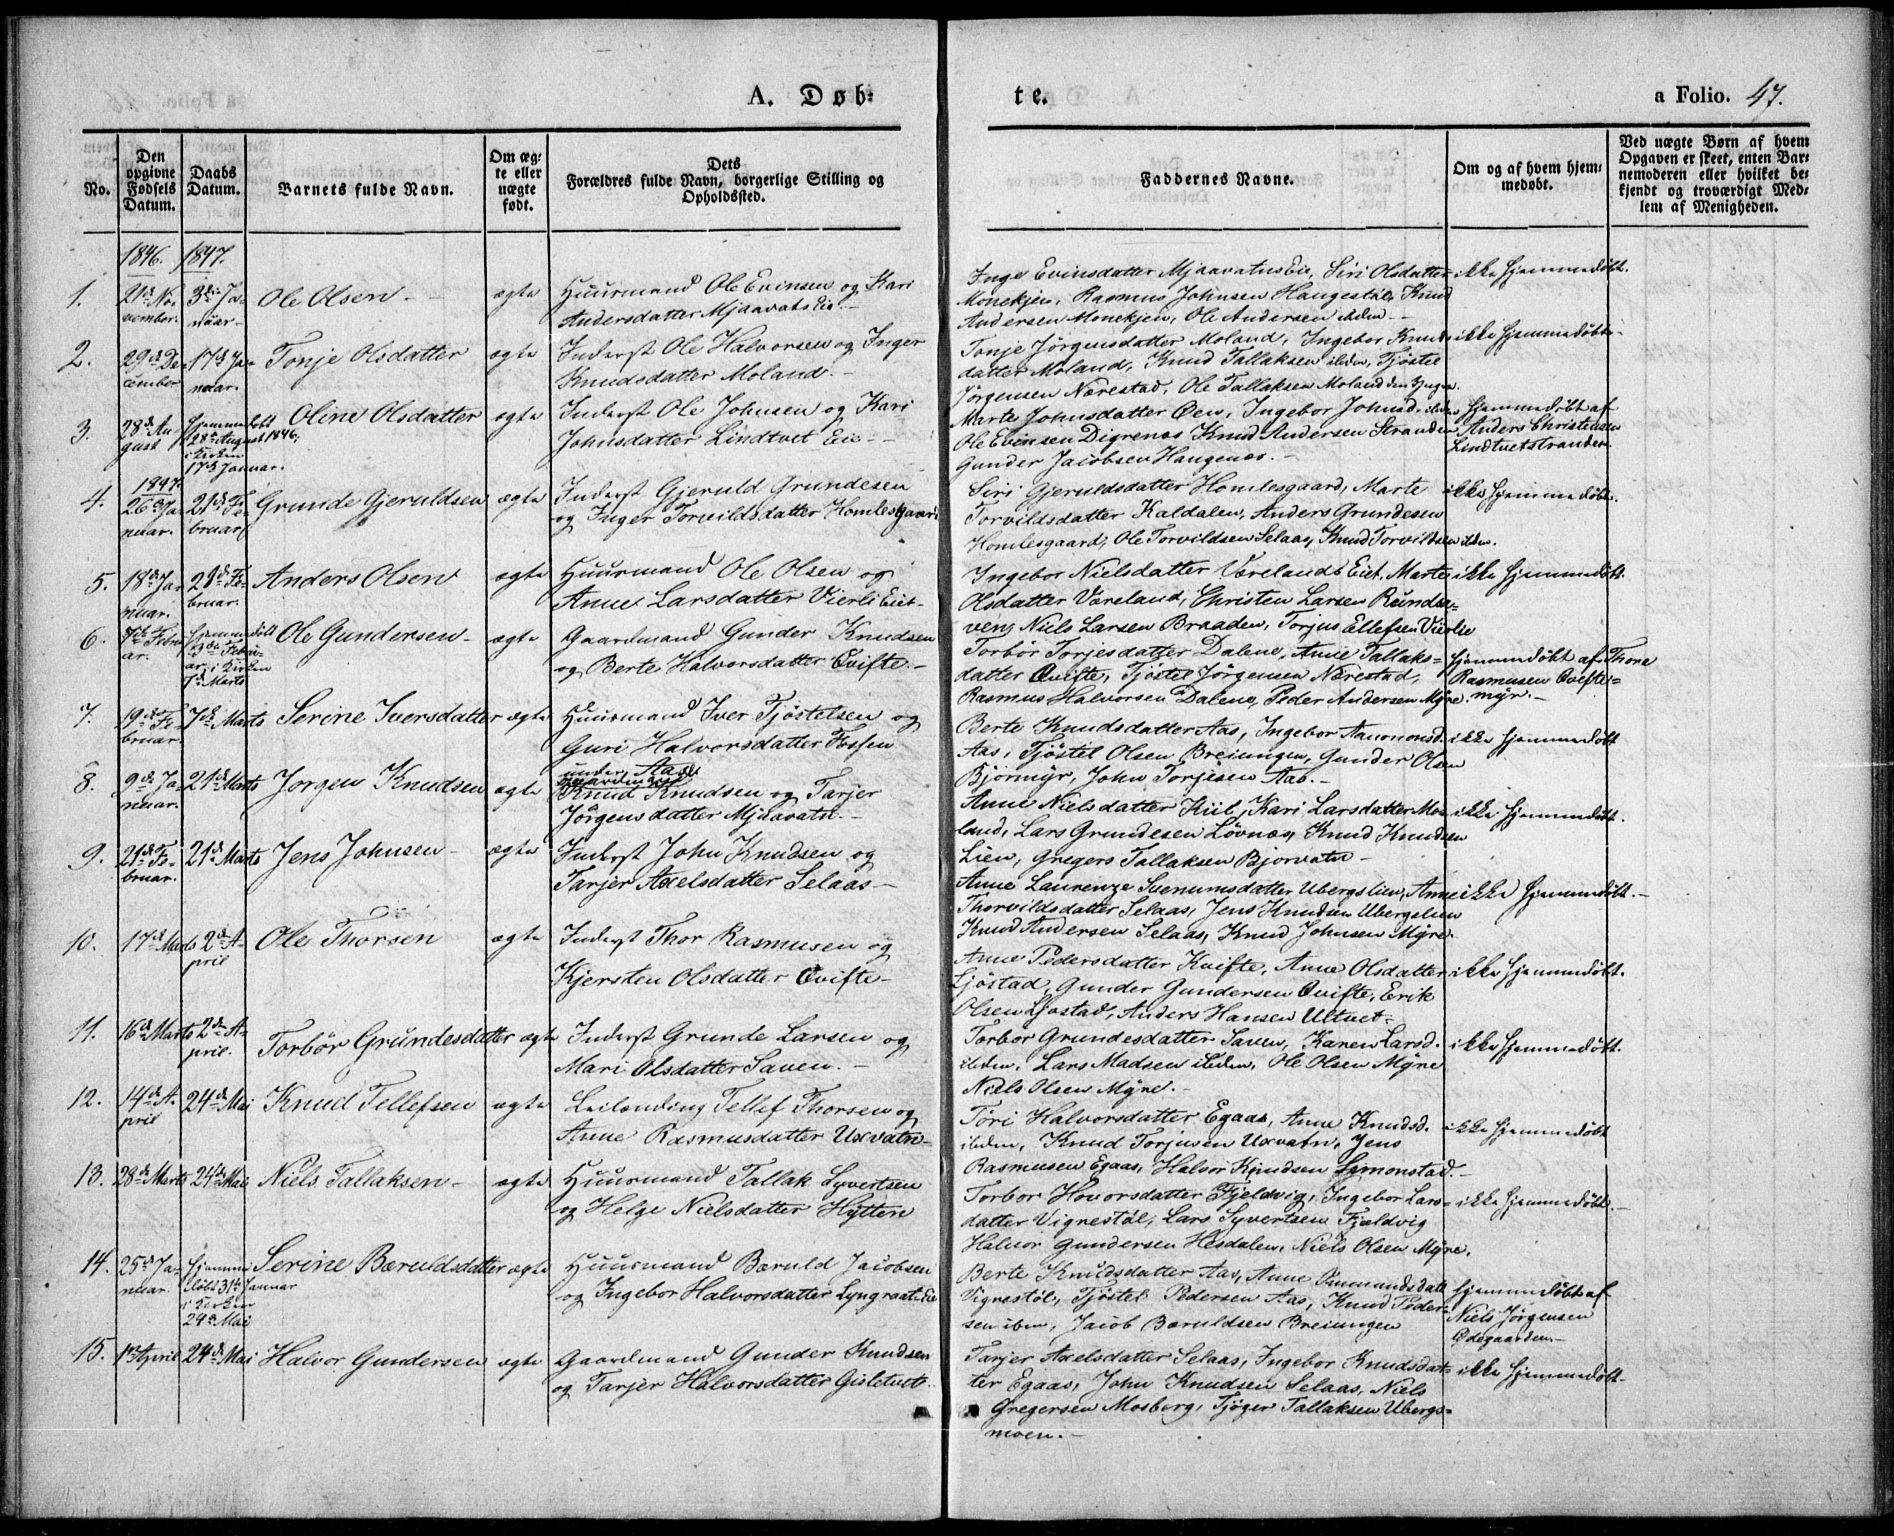 A. Døb=
te.
a Folio. 47.
No.
Den opgivne Fødsels Datum.
Daabs Datum.
Barnets fulde Navn.
Om æg=
te eller
uægte
født.
Dets
Forældres fulde Navn, borgerlige Stilling og
Opholdssted.
Faddernes Navne.
Om og af hvem hjem=
medøbt.
Ved uægte Børn af hvem
Opgaven er skeet, enten Bar=
nemoderen eller hvilket be=
kjendt og troværdigt Med=
lem af Menigheden.
1846. 1847.
1. 21de No-
vember.
3die Ja-
nuar-
Ole Olsen.
ægte
Huusmand Ole Evinsen og Kari
Andersdatter Mjaavats Eie.-
Inge Evinsdatter Mjaavatns Eie, Siri Olsdatter
Monekjen, Rasmus Johnsen Haugestøl, Knud
Andersen Monekjen, Ole Andersen ibiden
ikke hjemmedøbt.
2. 29de De-
cember
17de Ja-
nuar.
Tonje Olsdatter
ægte
Inderst Ole Halvorsen og Inger
Knudsdatter Moland.-
Tonje Jörgensdatter Moland, Ingebor Knuds
datter Moland, Knud Tallaksen ibiden, Tjöstel
Jörgensen Nærestad, Ole Tallaksen Moland den Yngre.
ikke hjemmedøbt-
3. 28de Au-
gust
Hjemmedøbt
28de August 1846,
i Kirken
17de Januar.
Oline Olsdatter
ægte
Inderst Ole Johnsen og Kari
Johnsdatter Lindtvet Eie-
Marte Johnsdatter Øen, Ingebor Johnsd. ibiden
Ole Evinsen Digrenæs Knud Andersen Stranden
Gunder Jacobsen Haugenæs.-
Hjemmedøbt af
Anders Christensen
Lindtvetstranden
4. 1847.
26de Ja-
nuar.
21de Fe-
bruar
Grunde Gjeruldsen
ægte
Inderst Gjeruld Grundesen
og Inger Torvildsdatter Homlesgaard
Siri Gjeruldsdatter Homlesgaard, Marte
Torvildsdatter Kaldalen, Anders Grundesen
Homlesgaard, Ole Torvildsen Selaas, Knud Torvildsen ibiden.
ikke hjemmedøbt.
5. 18de Ja-
nuar.
21de Fe-
bruar.
Anders Olsen
ægte
Huusmand Ole Olsen og
Anne Larsdatter Vierli Eiet-
Ingebor Nielsdatter Værelands Eiet, Marte
Olsdatter Væreland, Christen Larsen Rundaa-
ven, Niels Larsen Braaden, Torjus Ellefsen Vierlie
ikke hjemmedøbt.
6. 1ste Febru-
ar.
hjemmedøbt
3die Febru-
ar, i Kirken
7de Marts
Ole Gundersen-
ægte
Gaardmand Gunder Knudsen
og Berte Halvorsdatter Qvifte-
Torbör Torjesdatter Dalene, Anne Tallaks-
datter Qvifte, Tjöstel Jörgensen Nærestad,
Rasmus Halvorsen Dalene, Peder Andersen Myre.
hjemmedøbt af Thore
Rasmusen Qvifte-
myr.-
7. 19de Fe-
bruar.
7de Marts
Serine Iversdatter
ægte
Huusmand Iver Tjöstelsen og
Guri Halvorsdatter Fosfen
under Aas
Berte Knudsdatter Aas, Ingebor Aanonsd.
Aas, Tjöstel Olsen Breiungen, Gunder Olsen
Bjormyr, John Torjesen Aas.-
ikke hjemmedøbt
8. 9de Ja-
nuar.
21de Marts
Jorgen Knudsen
ægte
Gaardmand
Knud Knudsen og Tarjer
Jörgensdatter Mjaavatn.-
Anne Nielsdatter Kiil, Kari Larsdatter Mo-
land, Lars Grundesen Lövnæs, Knud Knudsen
Lien, Gregers Tallaksen Bjorvatn-
ikke hjemmedøbt.
9. 21de Fe-
bruar.
21de Marts
Jens Johnsen-
ægte
Inderst John Knudsen og
Tarjer Axelsdatter Selaas-
Anne Laurenze Svenumsdatter Ubergslien, Anne
Thorvildsdatter Selaas, Jens Knudsen Ubergslien
Knud Andersen Selaas, Knud Johnsen Myre.
ikke hjemmedøbt.-
10. 17de Marts
2den A-
pril
Ole Thorsen
ægte
Inderst Thor Rasmusen og
Kjersten Olsdatter Qvifte-
Anne Pedersdatter Kvifte, Anne Olsdatter
Ljöstad, Gunder Gundersen Qvifte, Erik
Olsen Ljostad, Anders Hansen Ultvet-
ikke hjemmedøbt.
11. 16de Marts
2den A-
pril.
Torbör Grundesdatter
ægte
Inderst Grunde Larsen og
Mari Olsdatter Saven.-
Torbor Grundesdatter Saven, Karen Larsd.
ibiden, Lars Madsen ibiden, Ole Olsen Myre
Niels Olsen Myre.-
ikke hjemmedøbt.
12. 14de A-
pril
24de Mai
Knud Tellefsen
ægte
Leilænding Tellef Thorsen og
Anne Rasmusdatter Uxvatn-
Töri Halvorsdatter Egaas, Anne Knudsd.
ibiden, Knud Torjusen Uxvatn, Jens
Rasmusen Egaas, Halvor Knudsen Symonstad.-
ikke hjemmedøbt
13. 28de Marts
24de Mai
Niels Tallaksen-
ægte
Huusmand Tallak Syvertsen
og Helge Nielsdatter Hytten
Torbor Hovorsdatter Fjeldvig, Ingebor Lars-
datter Vigrestöl, Lars Syvertsen Fjeldvig
Halvor Gundersen Hesdalen, Niels Olsen Myre.
ikke hjemmedøbt.-
14. 25de Ja-
nuar.
Hjemme-
døbt 31te Januar
i Kirken
24de Mai
Serine Bæruldsdatter
ægte
Huusmand Bæruld Jacobsen
og Ingebor Halvorsdatter Lyngraat Eie
Berte Knudsdatter Aas, Anne Osmundsdatt.
Vigrestöl, Tjöstel Pedersen Aas, Knud Peder-
sen ibm, Jacob Bæruldsen Breiungen
hjemmedøbt af
Niels Jørgensen
Ødegaarden-
15. 1ste April
24de Mai
Halvor Gundersen
ægte
Gaardmand Gunder Knudsen
og Tarjer Halvorsdatter Gisletvet.
Tarjer Axelsdatter Selaas, Ingebor Knudsdat-
ter Egaas, John Knudsen Selaas, Niels
Gregersen Mosberg, Tjöger Tallaksen Ubergs-
moen.-
ikke hjemmedøbt-